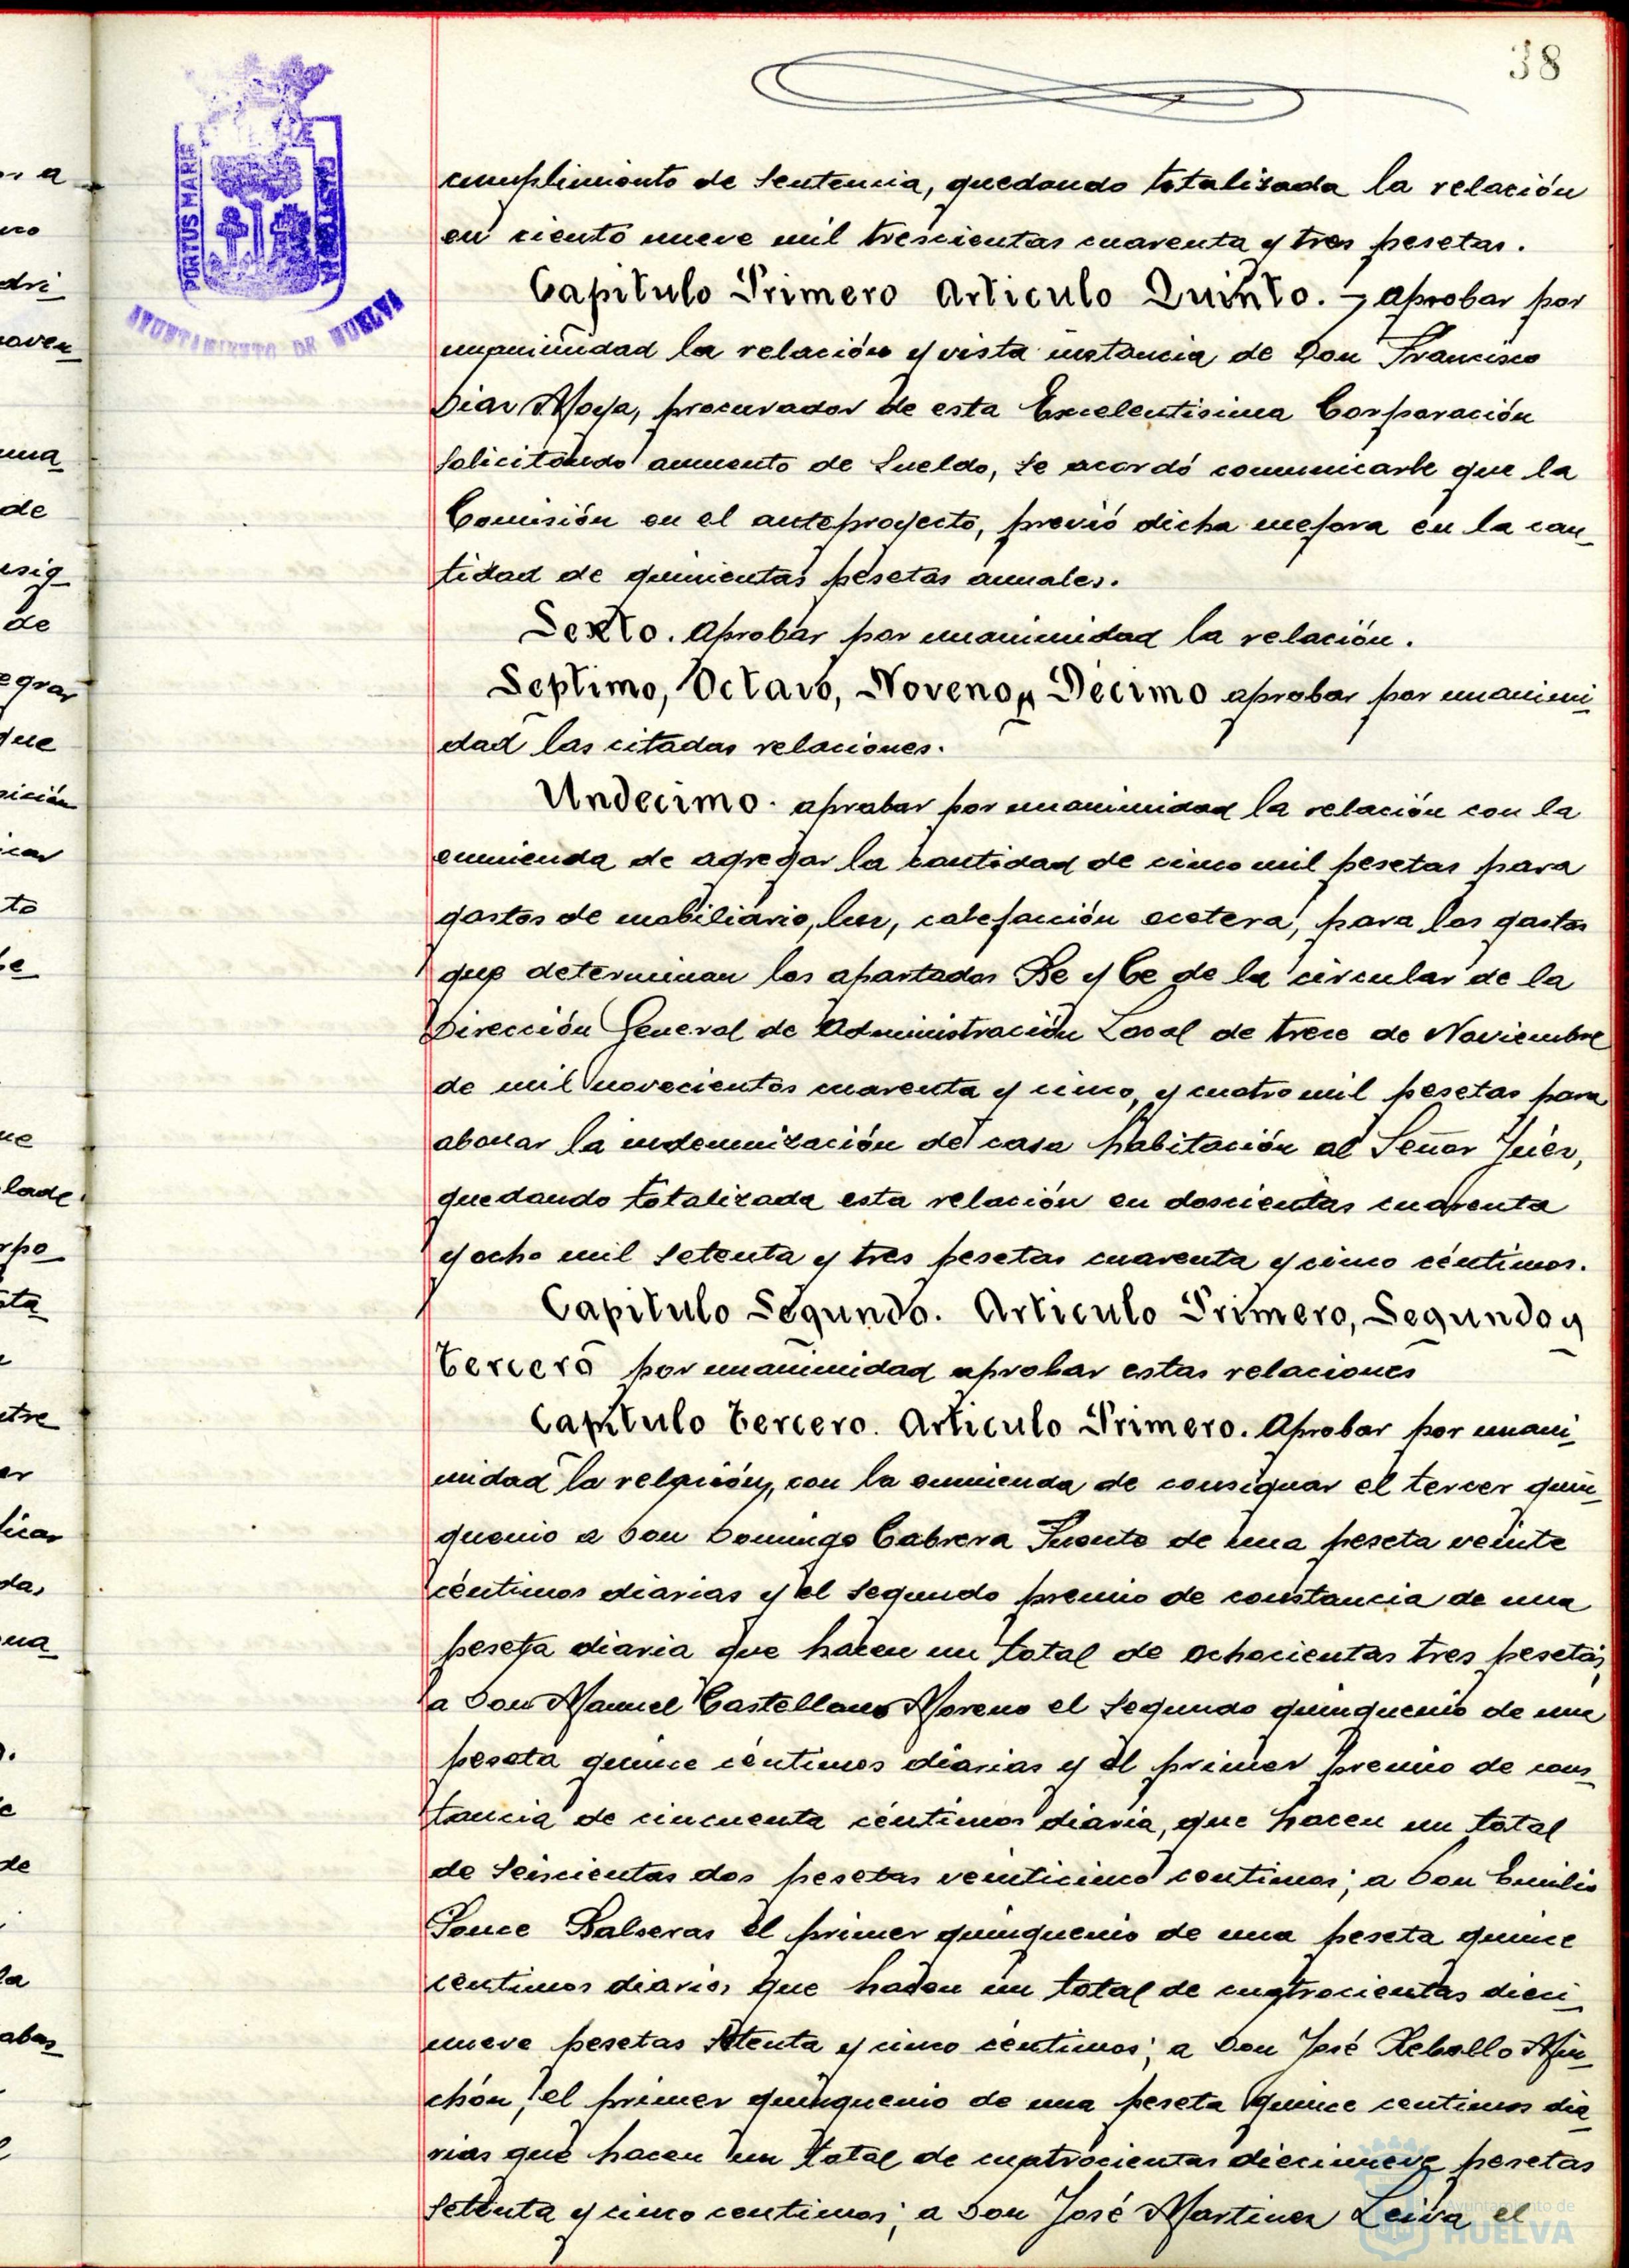 38
PORTUS MARIS
AYUNTAMIENTO DE HUELVA
cumplimiento de sentencia, quedando totalizada la relación
en ciento nueve mil trescientas cuarenta y tres pesetas.
Capitulo Primero Articulo Quinto. - aprobar por
unanimidad la relación y vista instancia de Don Francisco
Diaz Moya, procurador de esta Excelentisima Corporación
solicitando aumento de sueldo, se acordó comunicarle que la
Comisión en el anteproyecto, previó dicha mejora en la can_
tidad de quinientas pesetas anuales.
Sexto. aprobar por unanimidad la relación.
Septimo, Octavo, Noveno y Décimo aprobar por unanimi_
dad las citadas relaciones.
Undecimo. aprobar por unanimidad la relación con la
enmienda de agregar la cantidad de cinco mil pesetas para
gastos de mobiliario, luz, calefacción ecetera, para los gastos
que determinan los apartados Be y Ce de la circular de la
Dirección General de Administración Local de trece de Noviembre
de mil novecientos cuarenta y cinco, y cuatro mil pesetas para
abonar la indemnización de casa habitación al Señor Juez,
quedando totalizada esta relación en doscientas cuarenta
y ocho mil setenta y tres pesetas cuarenta y cinco céntimos.
Capitulo Segundo. Articulo Primero, Segundo y
Tercero por unanimidad aprobar estas relaciones
Capitulo Tercero. Articulo Primero. Aprobar por unani_
midad la relación, con la enmienda de consignar el tercer quin_
quenio a Don Domingo Cabrera Puente de una peseta veinte
céntimos diarias y el segundo premio de constancia de una
peseta diaria que hacen un total de ochocientas tres pesetas;
a Don Manuel Castellano Moreno el segundo quinquenio de una
peseta quince céntimos diarias y el primer premio de cons_
tancia de cincuenta céntimos diaria, que hacen un total
de seiscientas dos pesetas veinticinco centimos; a Don Emilio
Ponce Balseras el primer quinquenio de una peseta quince
céntimos diarios que hacen un total de cuatrocientas dieci_
nueve pesetas setenta y cinco céntimos; a Don José Rebollo Min_
chón, el primer quinquenio de una peseta quince centimos dia_
rias que hacen un total de cuatrocientas diecinueve pesetas
setenta y cinco centimos; a Don José Martinez Leiva el
Ayuntamiento de
HUELVA